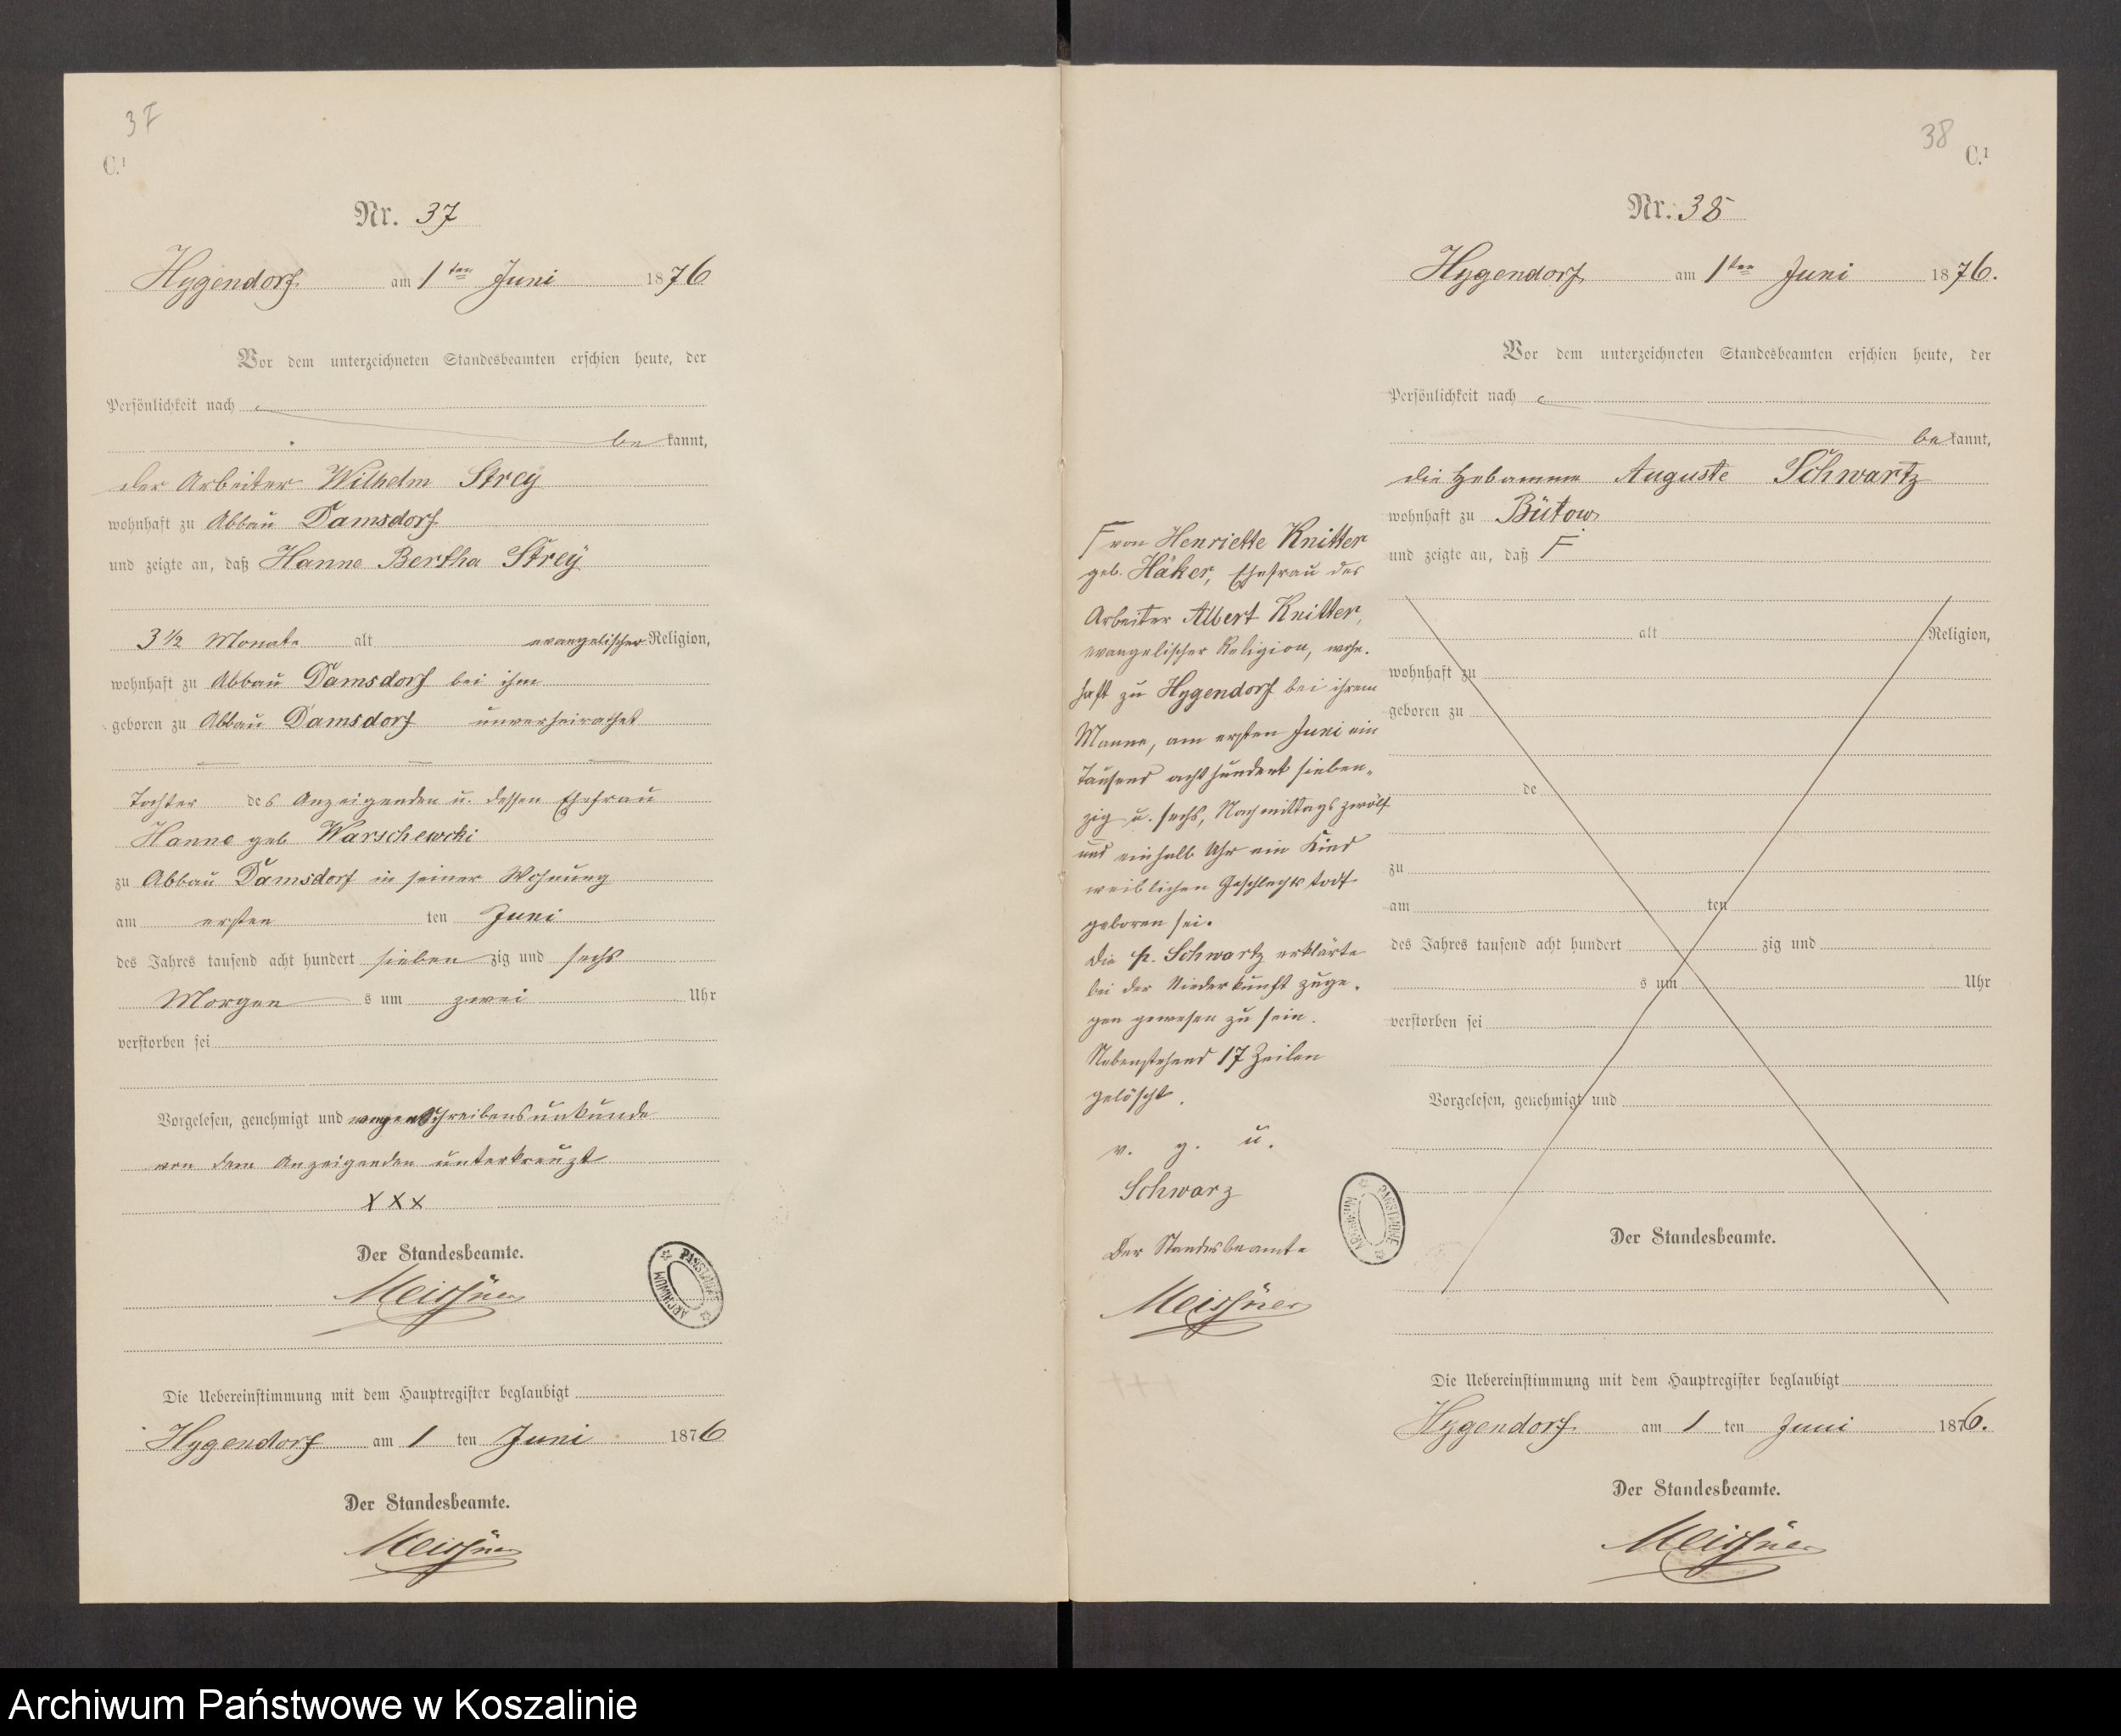 37
C.¹
Nr. 37
Hygendorf am 1ten Juni 1876
Vor dem unterzeichneten Standesbeamten erschien heute, der
Persönlichkeit nach
be kannt,
der Arbeiter Wilhelm Strey
wohnhaft zu Abbau Damsdorf
und zeigte an, daß Hanne Bertha Strey
3 1/2 Monate alt evangelischer Religion,
wohnhaft zu Abbau Damsdorf bei ihm
geboren zu Abbau Damsdorf unverheirathet
Tochter des Anzeigenden u. dessen Ehefrau
Hanne geb Warschewski
zu Abbau Damsdorf in seiner Wohnung
am ersten ten Juni
des Jahres tausend acht hundert sieben zig und sechs
Morgen s um zwei Uhr
verstorben sei
Vorgelesen, genehmigt und wegen Schreibensunkunde
von dem Anzeigenden unterkreuzt
XXX
Der Standesbeamte.
Meissner
PAŃSTWOWE ARCHIWUM
Die Uebereinstimmung mit dem Hauptregister beglaubigt
Hygendorf am 1 ten Juni 1876
Der Standesbeamte.
Meissner
38
C.¹
Nr. 38
Hygendorf am 1ten Juni 1876.
Vor dem unterzeichneten Standesbeamten erschien heute, der
Persönlichkeit nach
be kannt,
die Hebamme Auguste Schwartz
wohnhaft zu Bütow
und zeigte an, daß F
alt Religion,
wohnhaft zu
geboren zu
de
zu
am ten
des Jahres tausend acht hundert zig und
s um Uhr
verstorben sei
Vorgelesen, genehmigt und
Der Standesbeamte.
F von Henriette Knitter
geb. Häker, Ehefrau des
Arbeiter Albert Knitter,
evangelischer Religion, wohn-
haft zu Hygendorf bei ihrem
Manne, am ersten Juni ein
Tausend acht hundert sieben-
zig u. sechs, Nachmittags zwölf
und einhalb Uhr ein Kind
weiblichen Geschlechts todt
geboren sei.
Die p. Schwartz erklärte
bei der Niederkunft zuge-
gen gewesen zu sein.
Nebenstehend 17 Zeilen
gelöscht.
v. g. u.
Schwarz
Der Standesbeamte
Meissner
PAŃSTWOWE ARCHIWUM
Die Uebereinstimmung mit dem Hauptregister beglaubigt
Hygendorf am 1 ten Juni 1876.
Der Standesbeamte.
Meissner
Archiwum Państwowe w Koszalinie